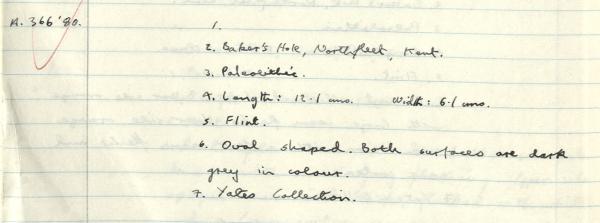 A. 366'80.
1.
2. Baker's Hole, Northfleet, Kent.
3. Paleolithic.
4. Length: 12.1 cms. Width: 6.1 cms.
5. Flint.
6. Oval shaped. Both surfaces are dark
grey in colour.
7. Yates Collection.